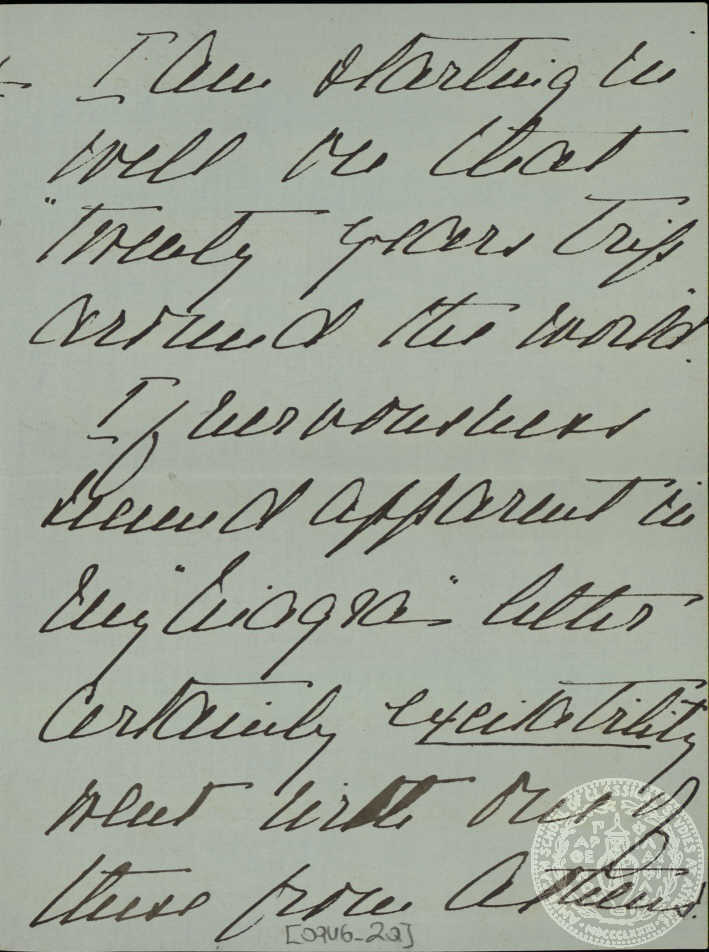 I am starting in
well on that
"twenty years trip
around the world"
If nervousness
seemed apparent in
my "Niagra" letter
certainly excitability
went with one of
these from Athens!
[0946-2a]